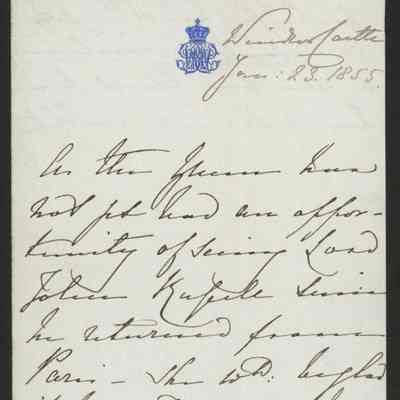 Windsor Castle
Jan: 23. 1855.
As the Queen has
not yet had an oppor-
tunity of seeing Lord
John Russell since
he returned from
Paris - she wd. be glad
if he